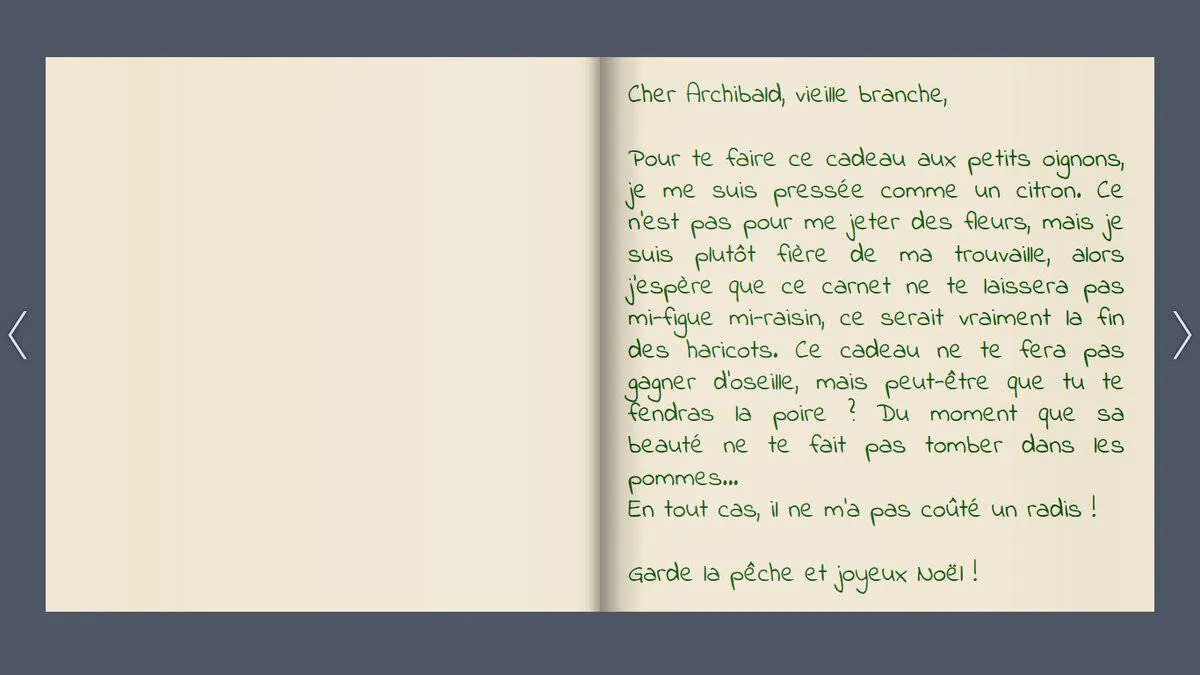 Cher Archibald, vieille branche,
Pour te faire ce cadeau aux petits oignons,
je me suis pressée comme un citron. Ce
n'est pas pour me jeter des fleurs, mais je
suis plutôt fière de ma trouvaille, alors
j'espère que ce carnet ne te laissera pas
mi-figue mi-raisin, ce serait vraiment la fin
des haricots. Ce cadeau ne te fera pas
gagner d'oseille, mais peut-être que tu te
fendras la poire ? Du moment que sa
beauté ne te fait pas tomber dans les
pommes...
En tout cas, il ne m'a pas coûté un radis !
Garde la pêche et joyeux Noël !